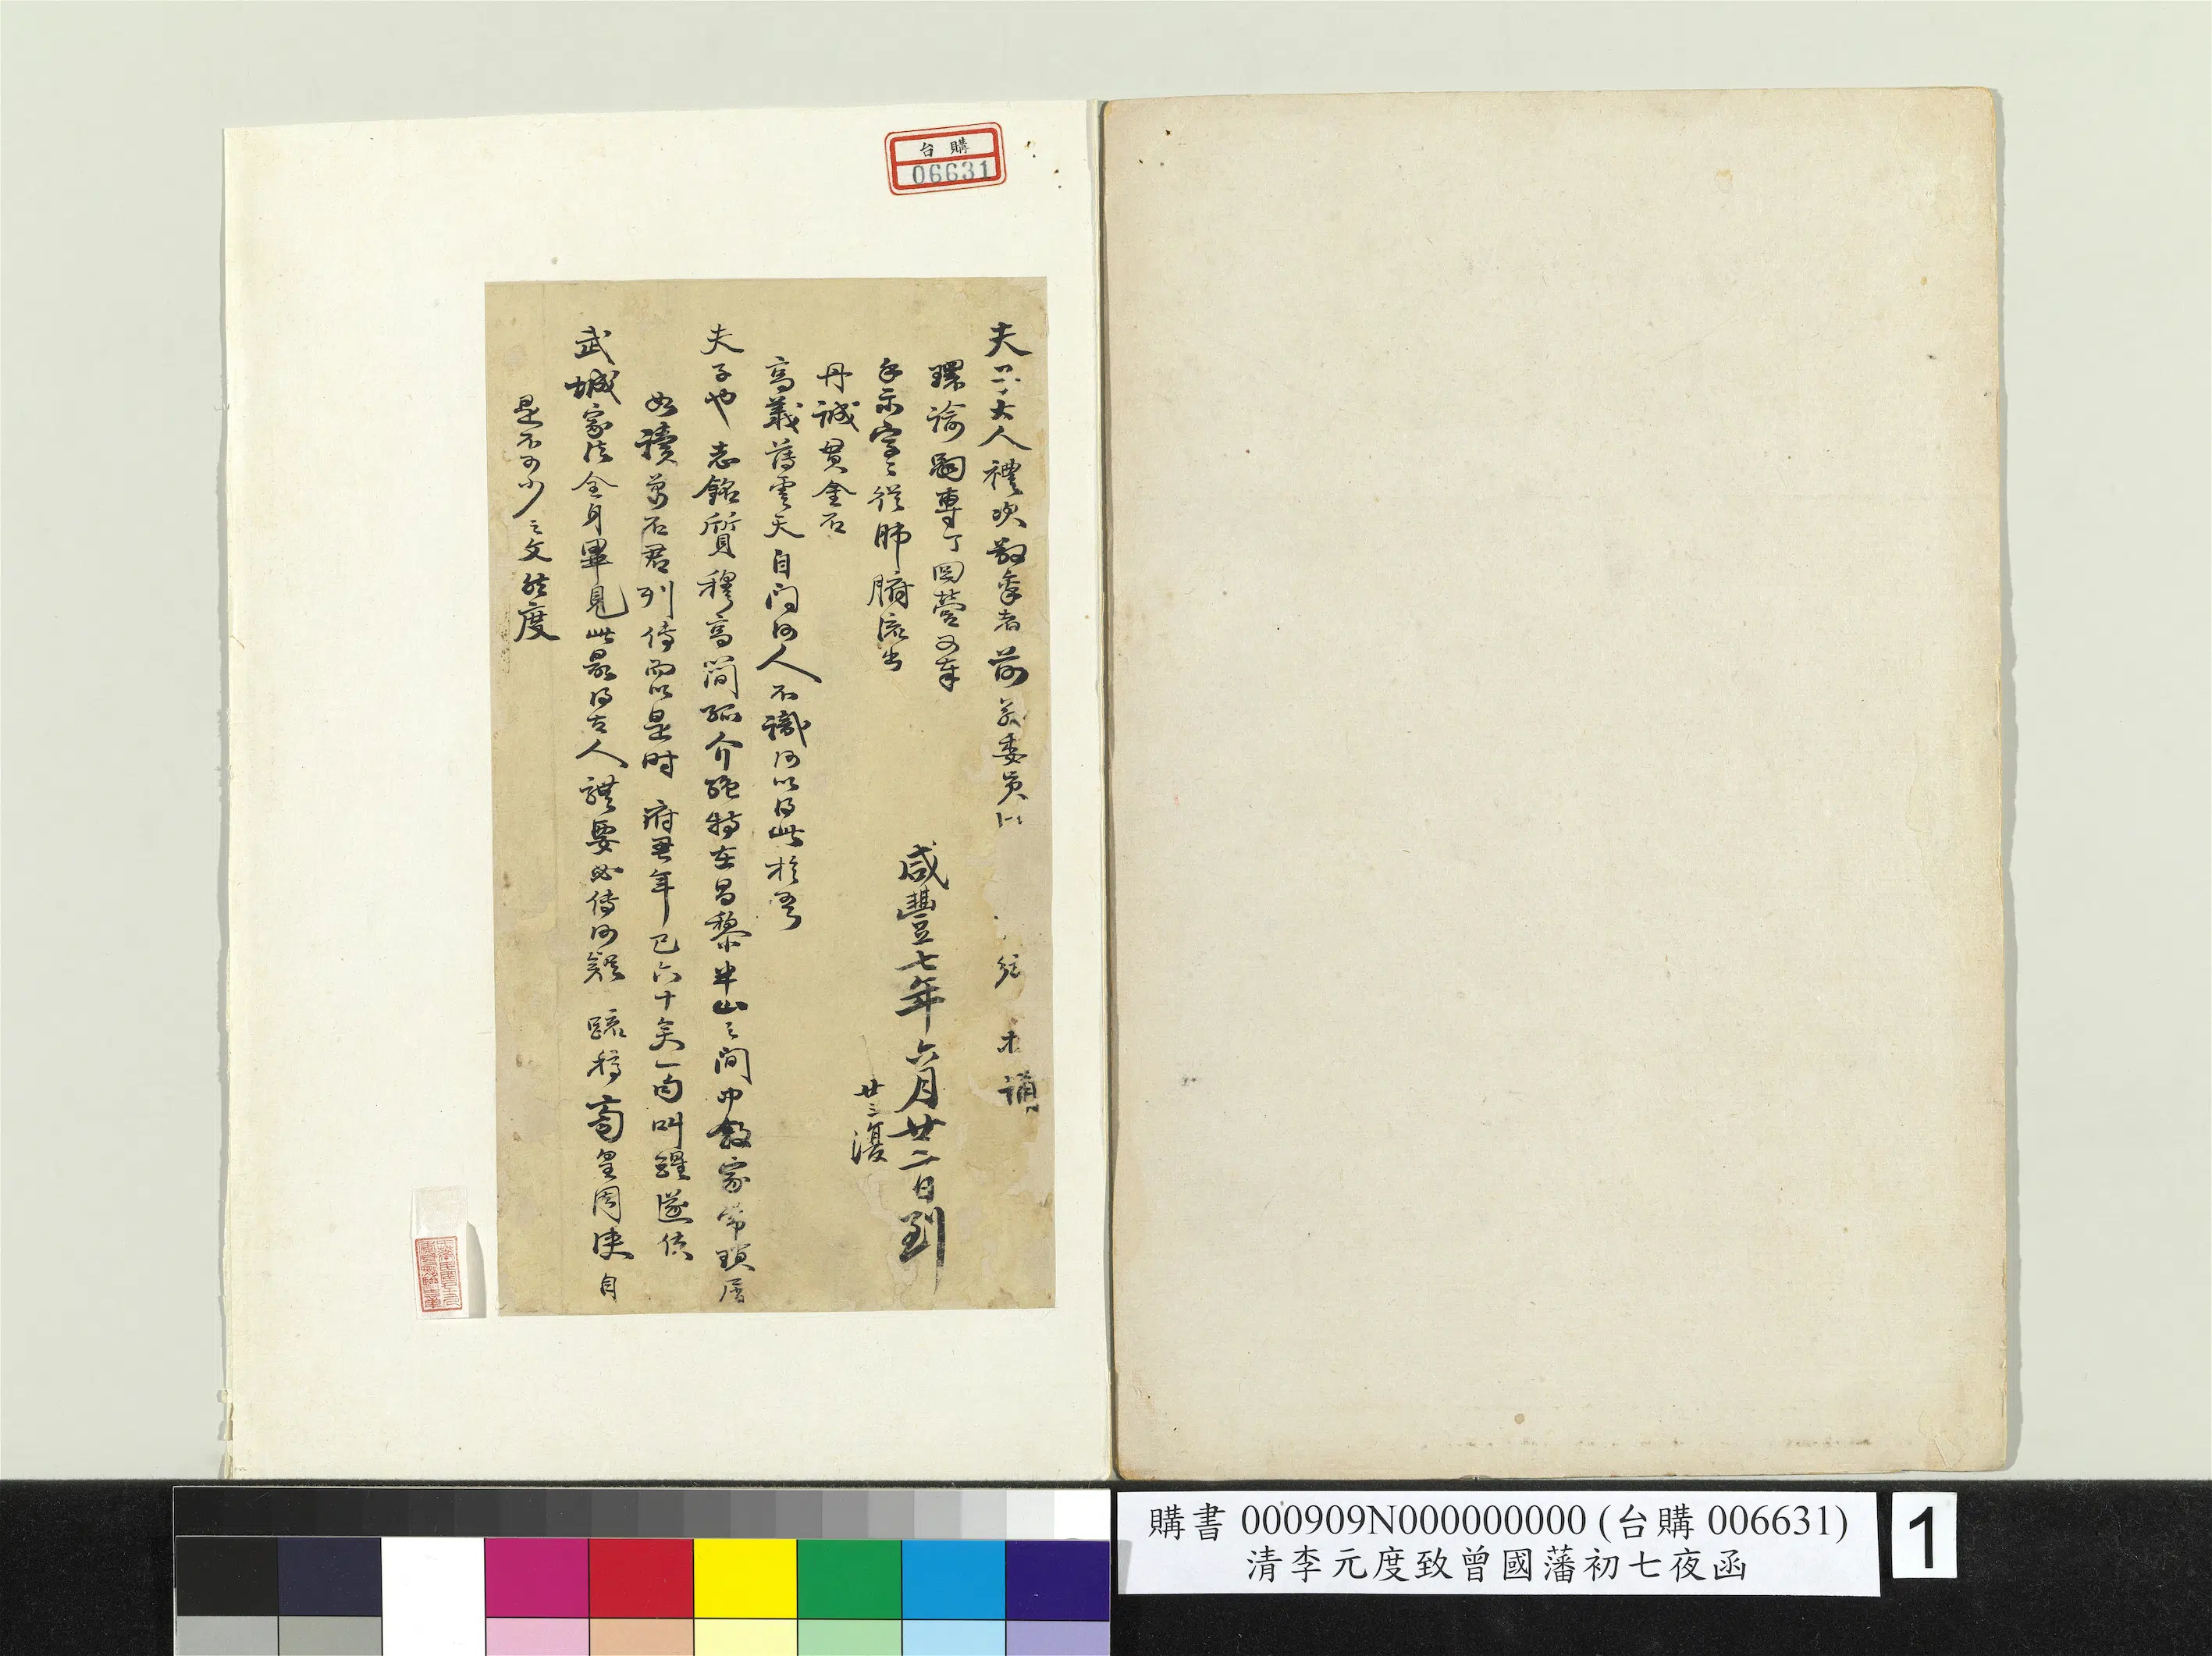 夫子大人禮次敬肅者前蔣委員
誦
環諭嗣專丁回營又奉
手示字字從肺腑流出
丹誠貫金石
高義薄雲天自問何人不識何以得此於吾
夫子也 志銘質穆高簡孤介絕特在昌黎半山之間中敘家常瑣屑
如讀萬石君列傳而以是時 府君年已六十矣一句叫醒遂使
武城家法全身畢見此最得古人譔要必傳何疑 疏稿 周浹自
是不可少之文然度
咸豐七年六月廿二日到
廿三復
台購
06631
購書 000909N000000000 (台購 006631)
清李元度致曾國藩初七夜函
1